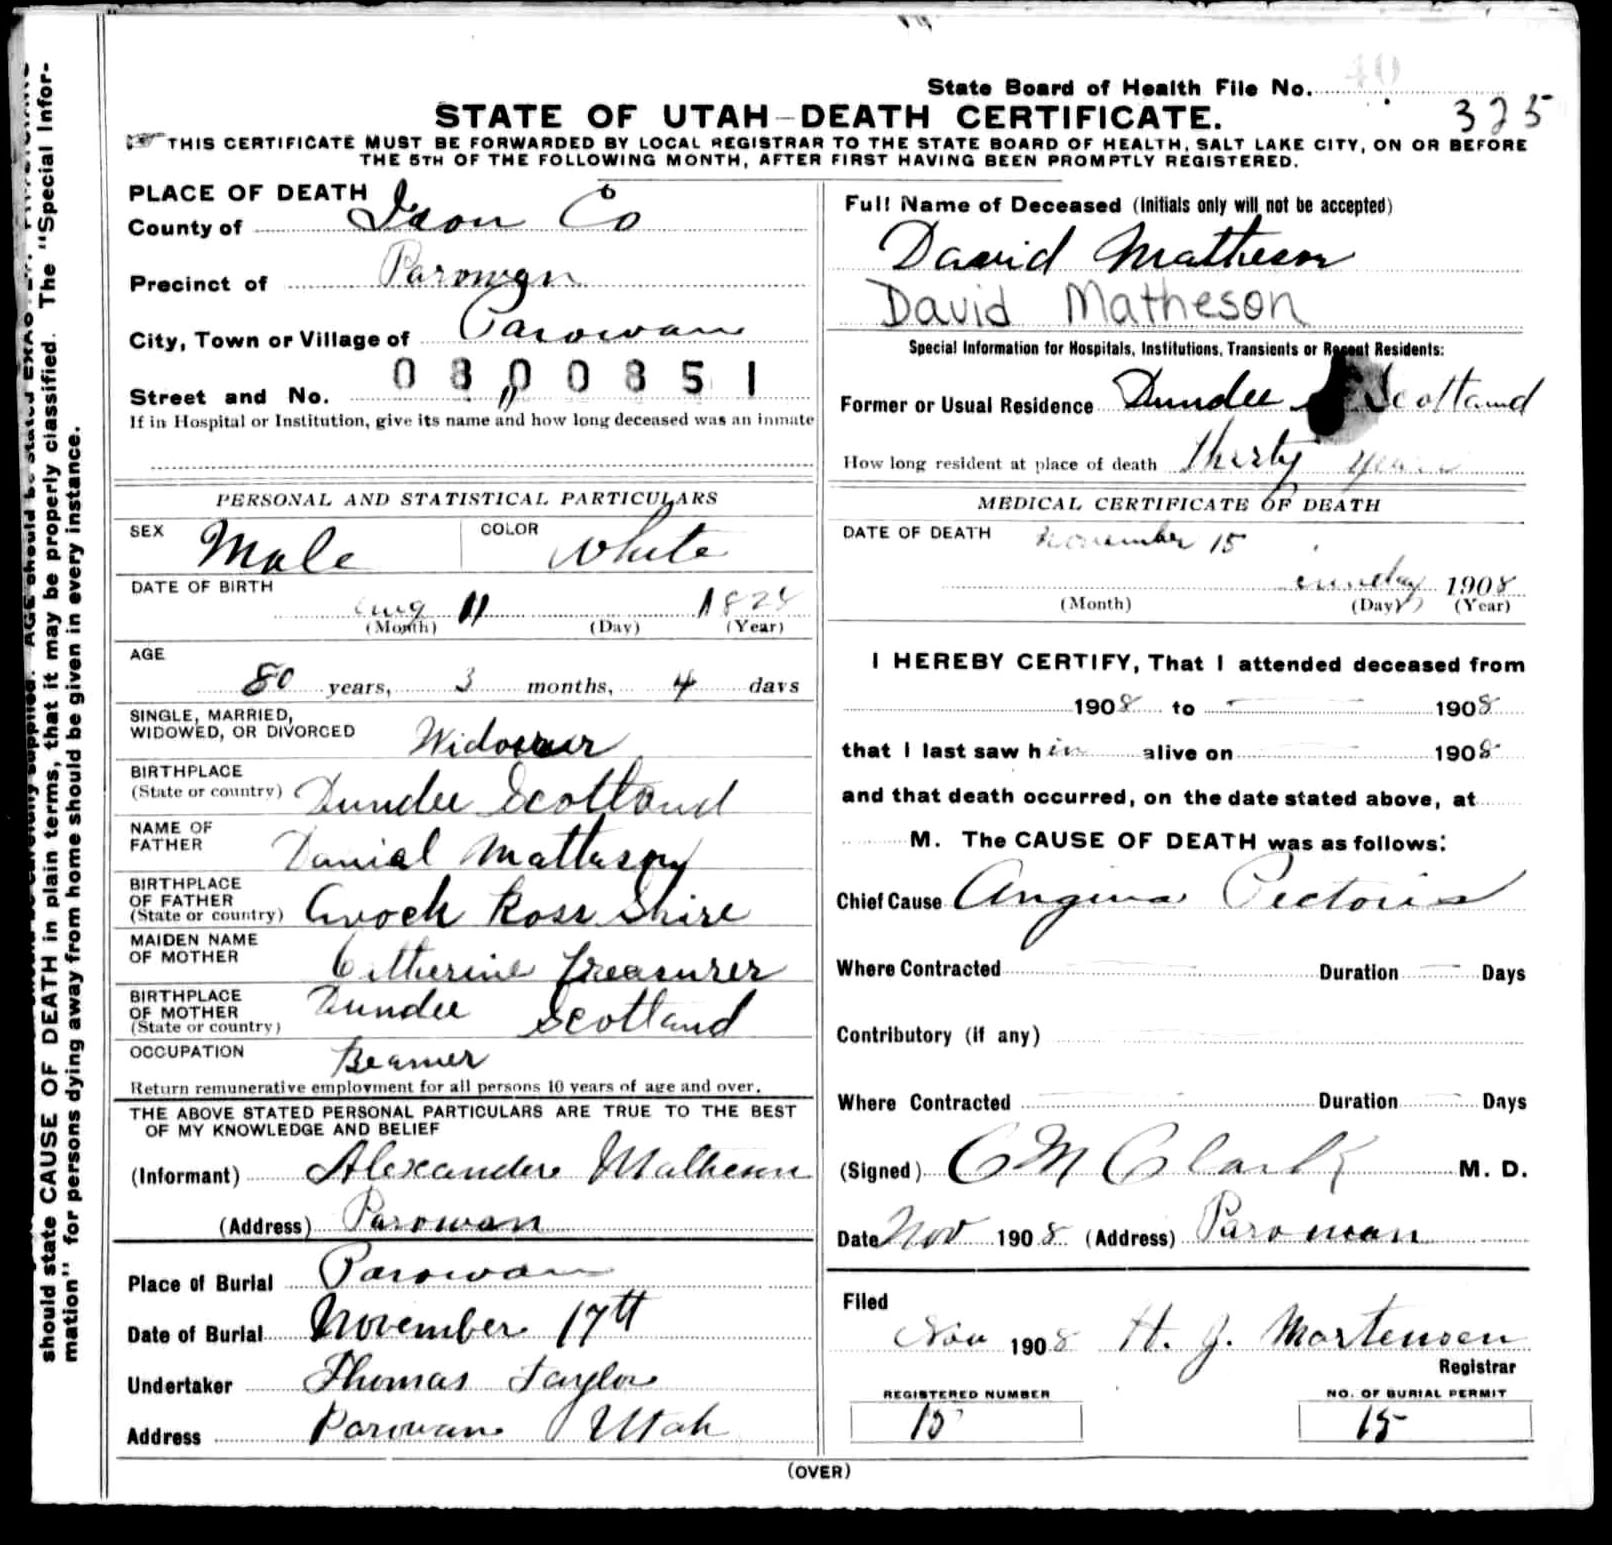 State Board of Health File No. 40
325
STATE OF UTAH—DEATH CERTIFICATE.
THIS CERTIFICATE MUST BE FORWARDED BY LOCAL REGISTRAR TO THE STATE BOARD OF HEALTH, SALT LAKE CITY, ON OR BEFORE
THE 5TH OF THE FOLLOWING MONTH, AFTER FIRST HAVING BEEN PROMPTLY REGISTERED.
PLACE OF DEATH
County of Iron Co
Precinct of Parowan
City, Town or Village of Parowan
0800851
Street and No. "
If in Hospital or Institution, give its name and how long deceased was an inmate
PERSONAL AND STATISTICAL PARTICULARS
SEX Male COLOR White
DATE OF BIRTH
Aug 11 1828
(Month) (Day) (Year)
AGE
80 years, 3 months, 4 days
SINGLE, MARRIED,
WIDOWED, OR DIVORCED Widower
BIRTHPLACE
(State or country) Dundee Scotland
NAME OF
FATHER Daniel Matheson
BIRTHPLACE
OF FATHER
(State or country) Avoch Ross Shire
MAIDEN NAME
OF MOTHER Catherine Treasurer
BIRTHPLACE
OF MOTHER
(State or country) Dundee Scotland
OCCUPATION Beamer
Return remunerative employment for all persons 10 years of age and over.
THE ABOVE STATED PERSONAL PARTICULARS ARE TRUE TO THE BEST
OF MY KNOWLEDGE AND BELIEF
(Informant) Alexander Matheson
(Address) Parowan
Place of Burial Parowan
Date of Burial November 17th
Undertaker Thomas Taylor
Address Parowan Utah
Full Name of Deceased (Initials only will not be accepted)
David Matheson
David Matheson
Special Information for Hospitals, Institutions, Transients or Recent Residents:
Former or Usual Residence Dundee Scotland
How long resident at place of death thirty years
MEDICAL CERTIFICATE OF DEATH
DATE OF DEATH November 15
1908
(Month) (Day) (Year)
I HEREBY CERTIFY, That I attended deceased from
1908 to 1908
that I last saw him alive on 1908
and that death occurred, on the date stated above, at
M. The CAUSE OF DEATH was as follows:
Chief Cause Angina Pectoris
Where Contracted Duration Days
Contributory (if any)
Where Contracted Duration Days
(Signed) C M Clark M. D.
Date Nov 1908 (Address) Parowan
Filed
Nov 1908 H. J. Mortensen
Registrar
REGISTERED NUMBER
15
NO. OF BURIAL PERMIT
15
(OVER)
should state CAUSE OF DEATH in plain terms, that it may be properly classified. The "Special Infor-
mation" for persons dying away from home should be given in every instance.